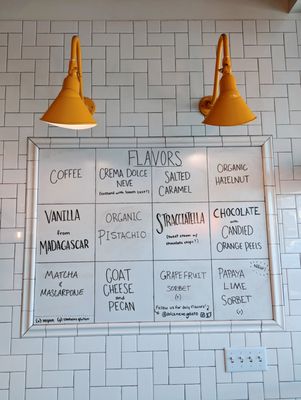 FLAVORS
COFFEE
CREMA DOLCE
NEVE
SALTED
CARAMEL
ORGANIC
HAZELNUT
VANILLA
from
MADAGASCAR
ORGANIC
PISTACHIO
STRACCIATELLA
(sweet cream w/
chocolate chips!)
CHOCOLATE
with
CANDIED
ORANGE PEELS
MATCHA
&
MASCARPONE
GOAT
CHEESE
and
PECAN
GRAPEFRUIT
SORBET
(v)
NEW!
PAPAYA
LIME
SORBET
(v)
Follow us for daily flavors!
(v) vegan (g) contains gluten